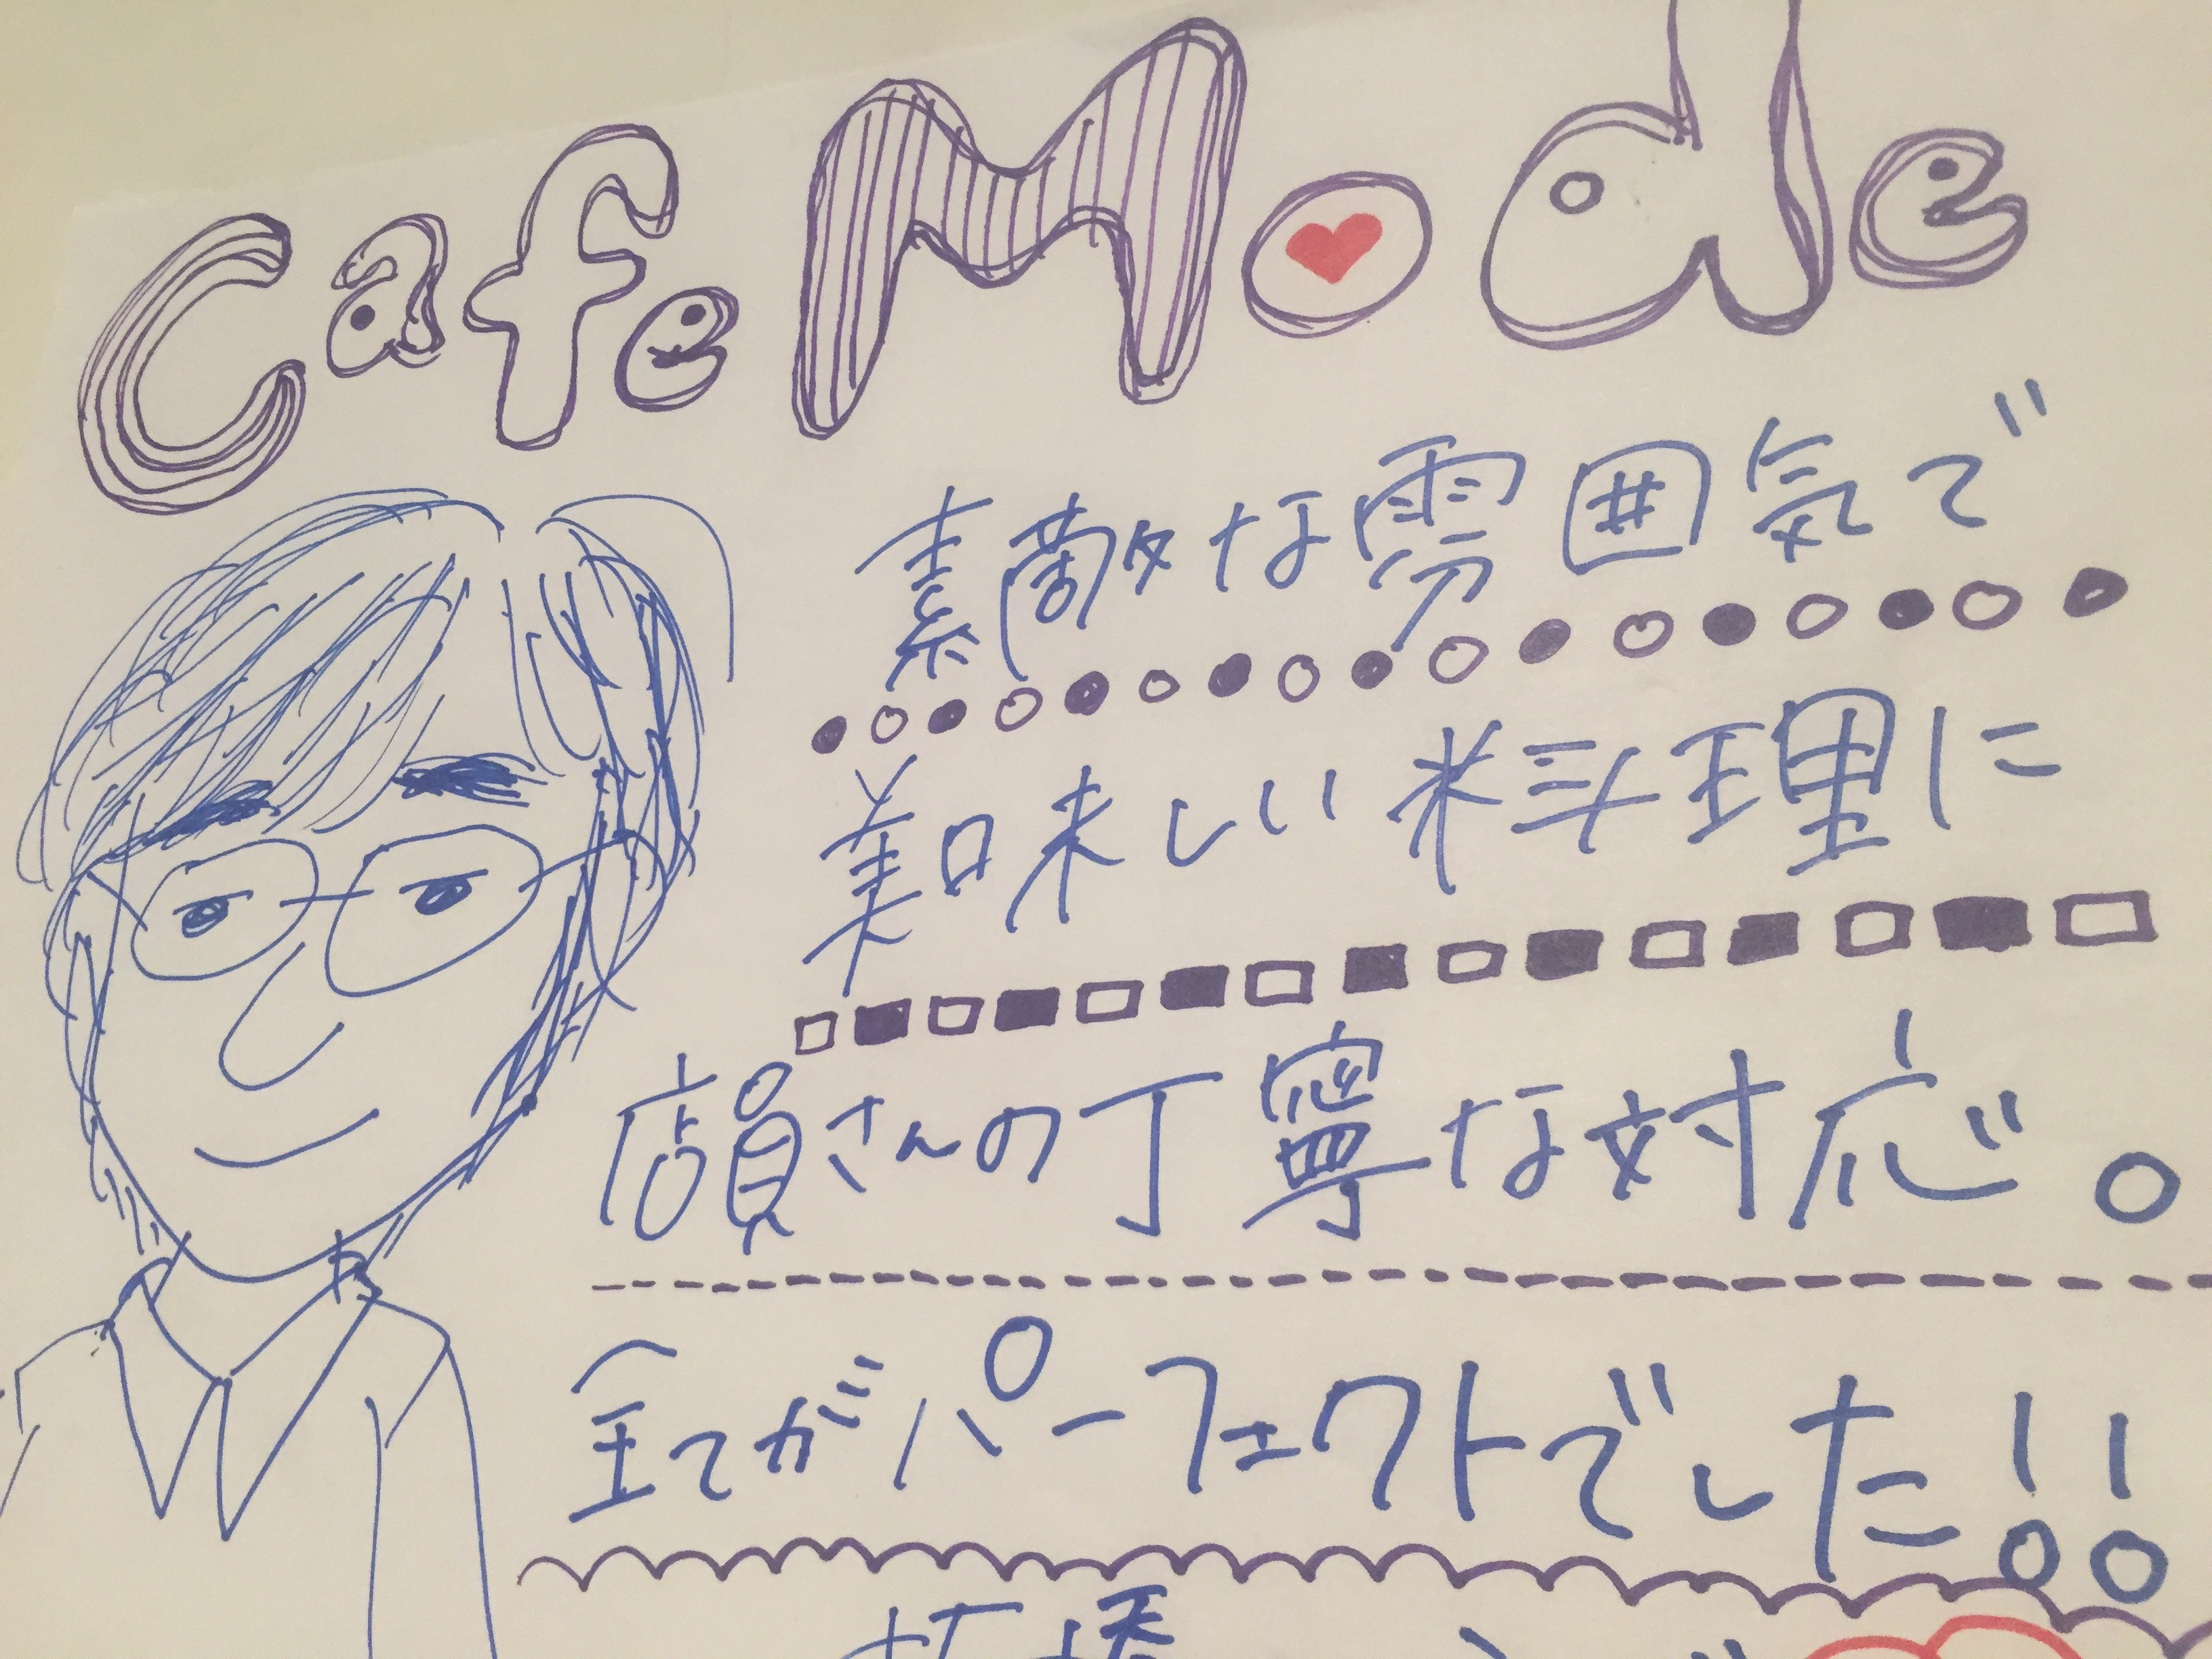 Cafe Mode
素敵な雰囲気で
美味しい料理に
店員さんの丁寧な対応。
全てがパーフェクトでした!!